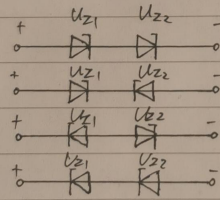 U_Z1 U_Z2
+ -
U_Z1 U_Z2
+ -
U_Z1 U_Z2
+ -
U_Z1 U_Z2
+ -